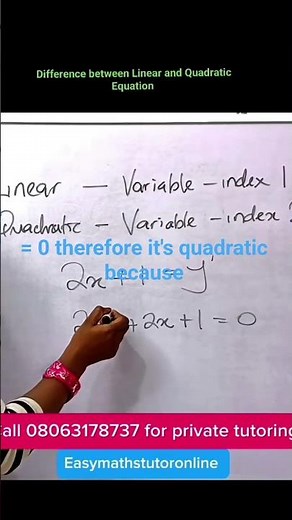 Difference between Linear and Quadratic
Equation
Linear — Variable - index 1
Quadratic - Variable - index
= 0 therefore it's quadratic
because
2x + 1 = y
+ 2x + 1 = 0
Call 08063178737 for private tutoring
Easymathstutoronline